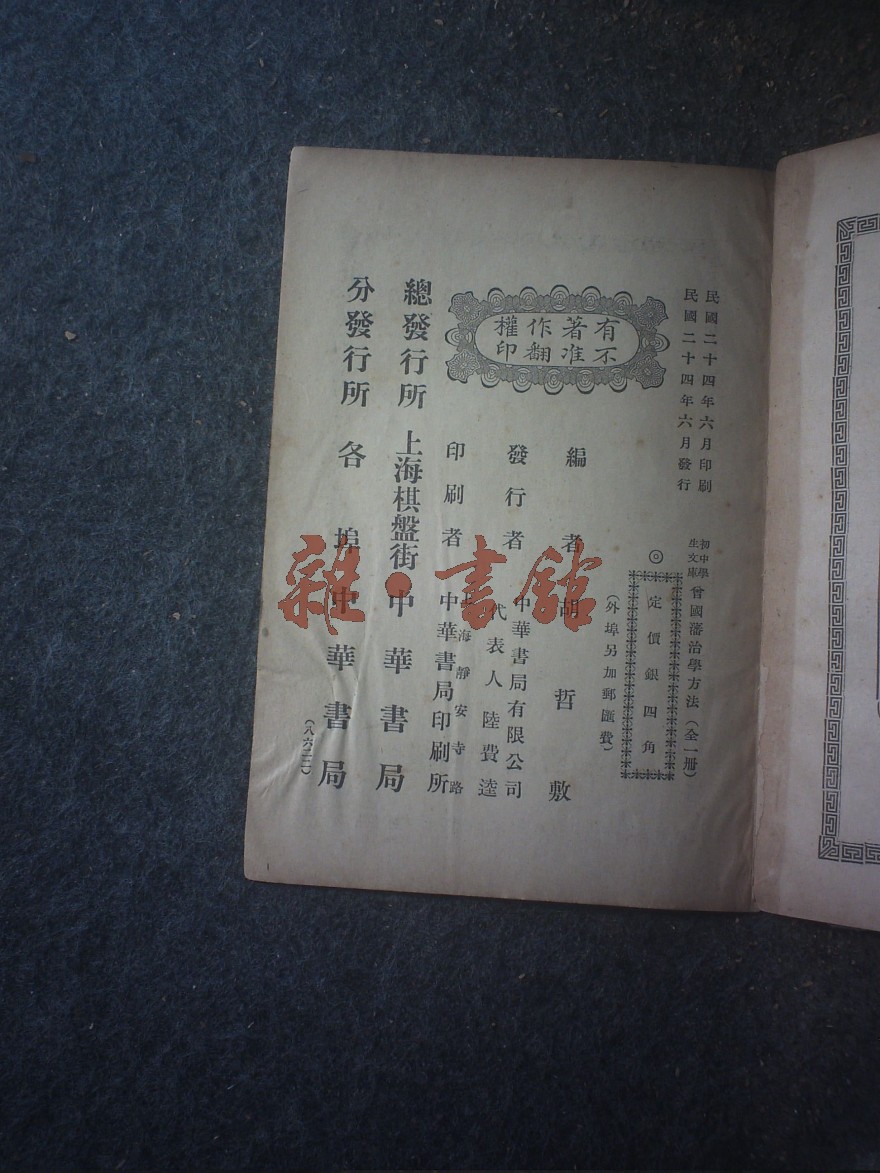 民國二十四年六月印刷
民國二十四年六月發行
初中學生文庫
曾國藩治學方法（全一冊）
◎
定價銀四角
（外埠另加郵匯費）
有著作權
不准翻印
編者 胡哲敷
發行者 中華書局有限公司
代表人 陸費逵
印刷者 上海靜安寺路
中華書局印刷所
總發行所 上海棋盤街 中華書局
分發行所 各埠 中華書局
（八六二二）
雜·書館